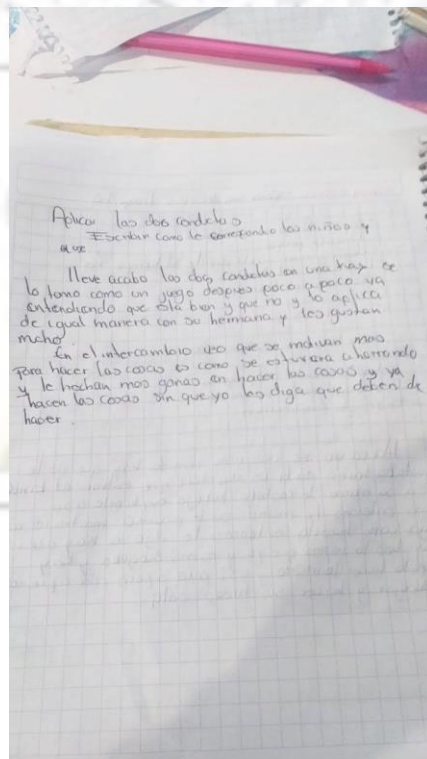 Aplicar las dos conductas
Escriban como le correspondio los niños y
que
lleve acabo las dos conductas en una se
lo tomo como un juego despues poco a poco va
entendiendo que está bien y que no y lo aplica
de igual manera con su hermana y les gustan
mucho.
En el intercambio veo que se motivan mas
para hacer las cosas es como se estuviera ahorrando
y le hechan mas ganas en hacer las cosas y ya
hacen las cosas sin que yo les diga que deben de
hacer.